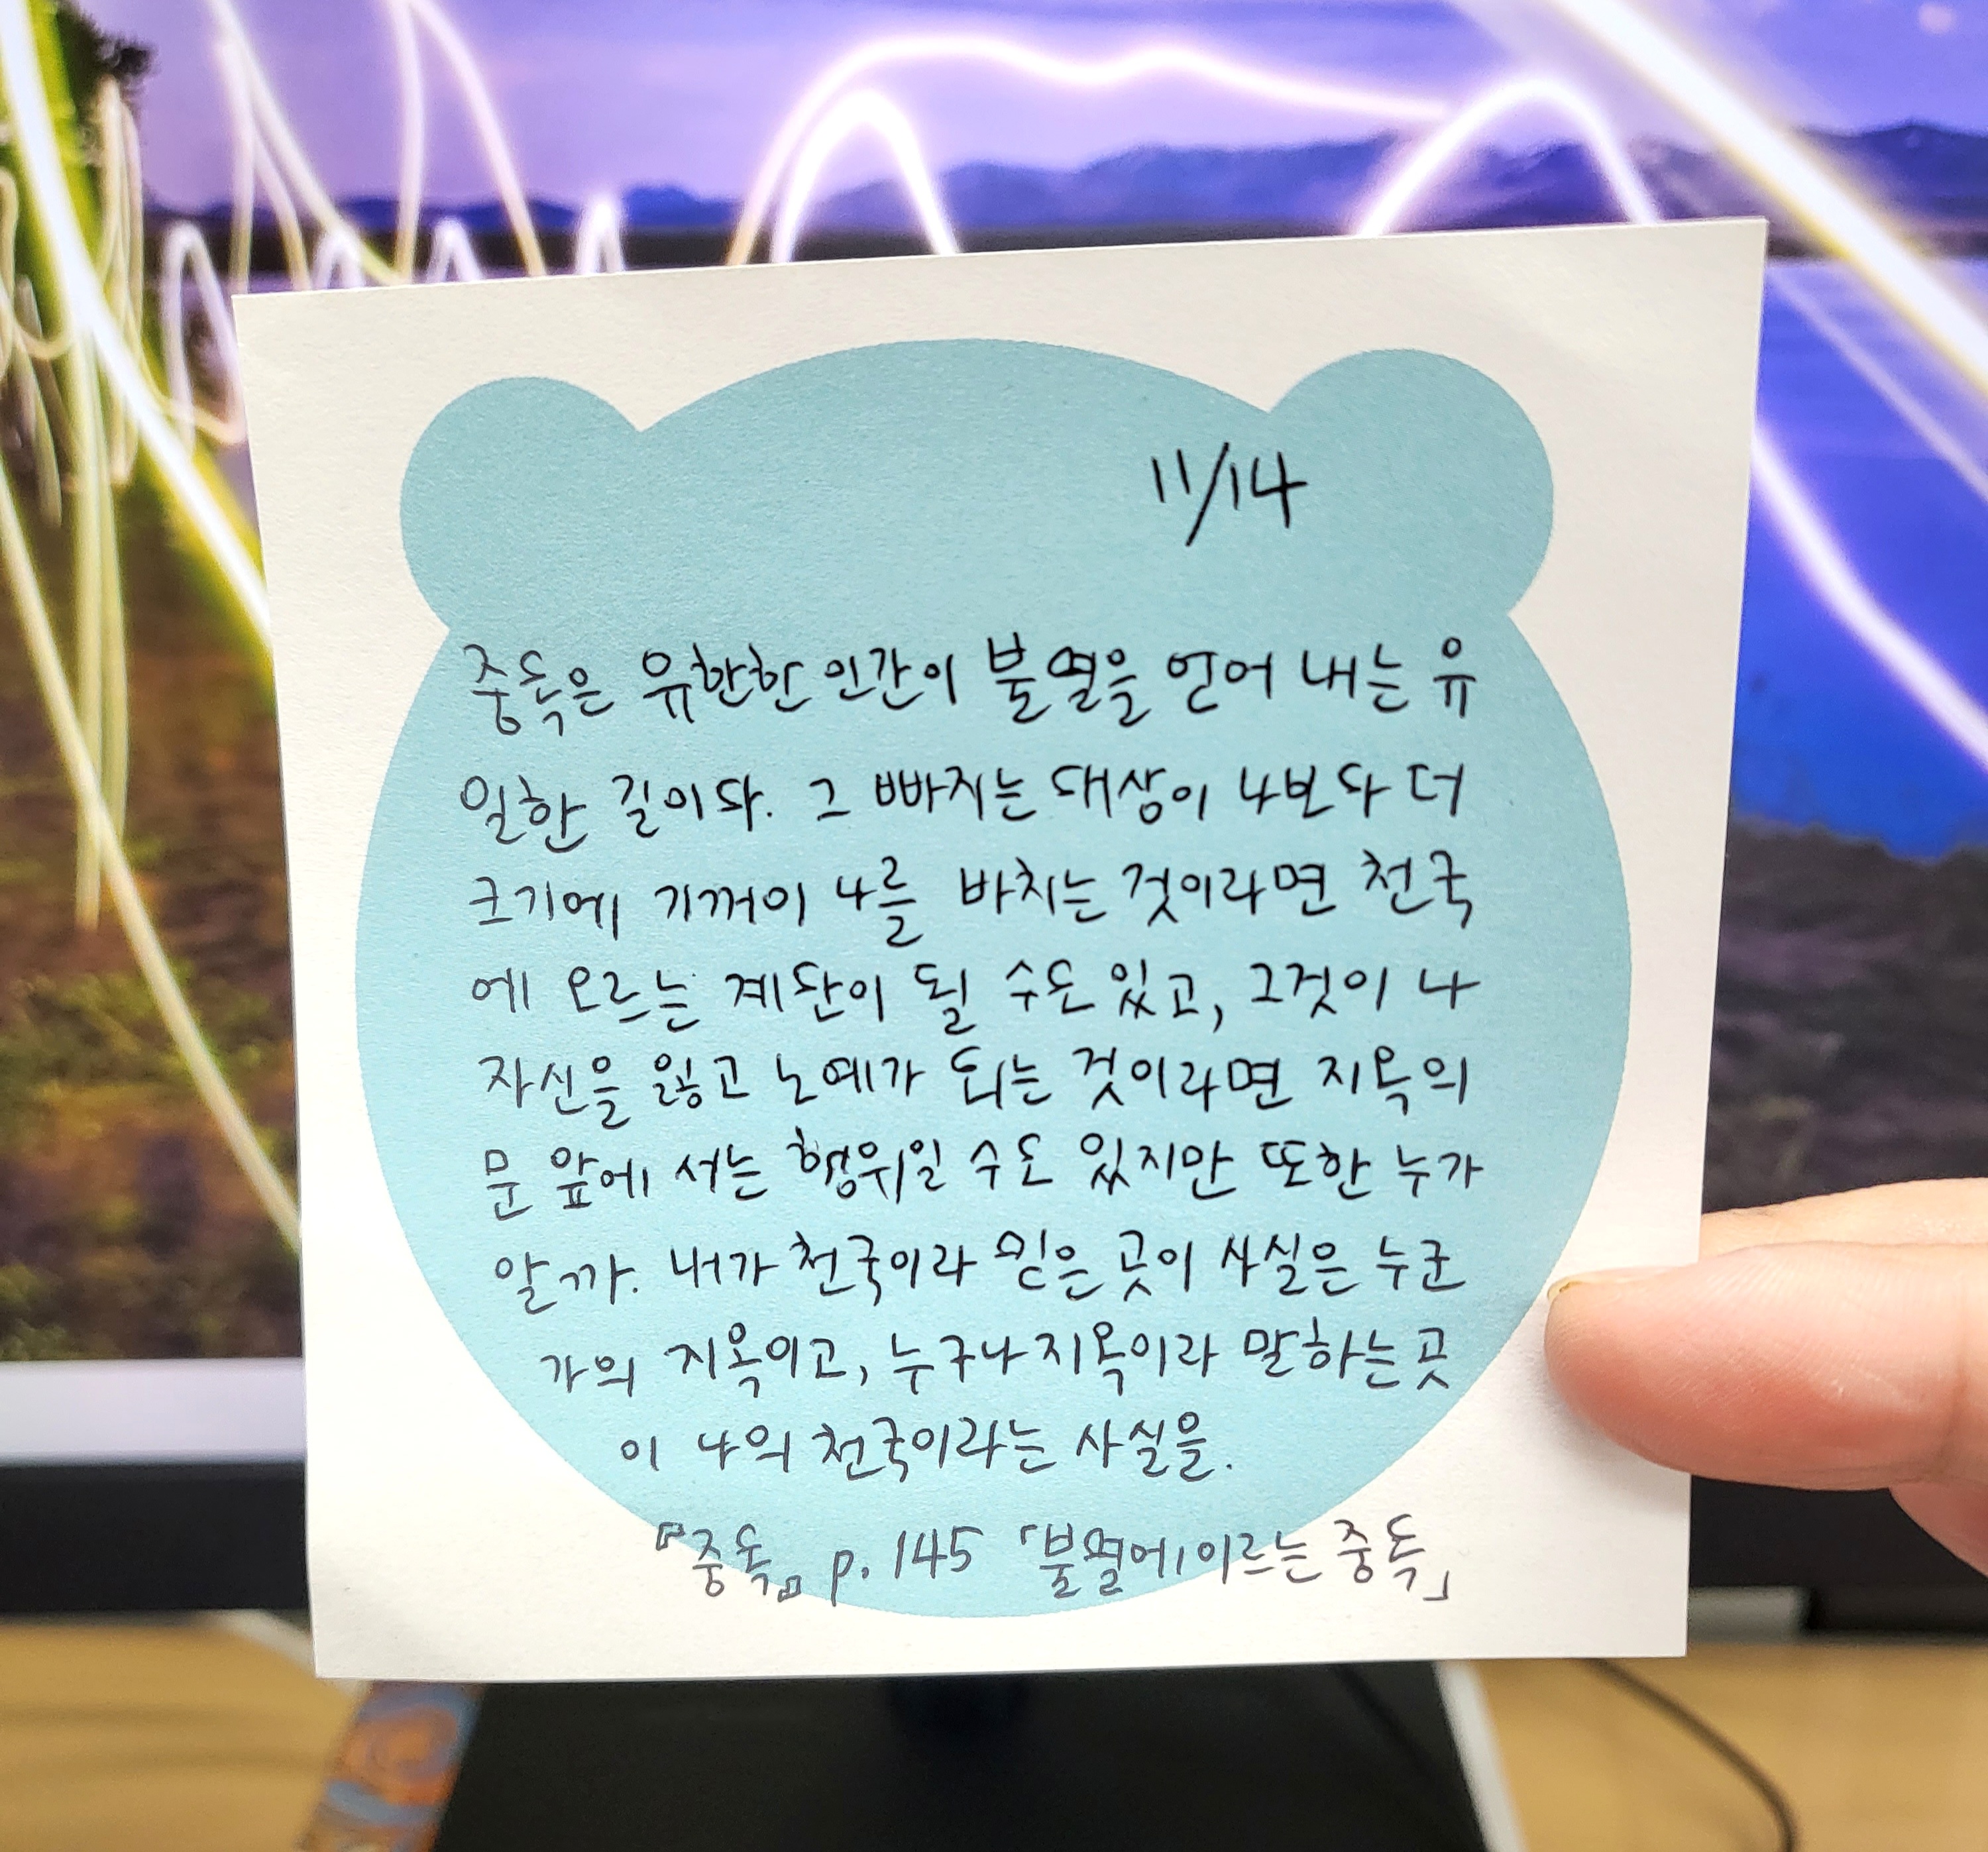 11/14
중독은 유한한 인간이 불멸을 얻어 내는 유
일한 길이다. 그 빠지는 대상이 나보다 더
크기에 기꺼이 나를 바치는 것이라면 천국
에 오르는 계단이 될 수도 있고, 그것이 나
자신을 잃고 노예가 되는 것이라면 지옥의
문 앞에 서는 행위일 수도 있지만 또한 누가
알까. 내가 천국이라 믿은 곳이 사실은 누군
가의 지옥이고, 누구나 지옥이라 말하는 곳
이 나의 천국이라는 사실을.
『중독』 p. 145 「불멸에 이르는 중독」